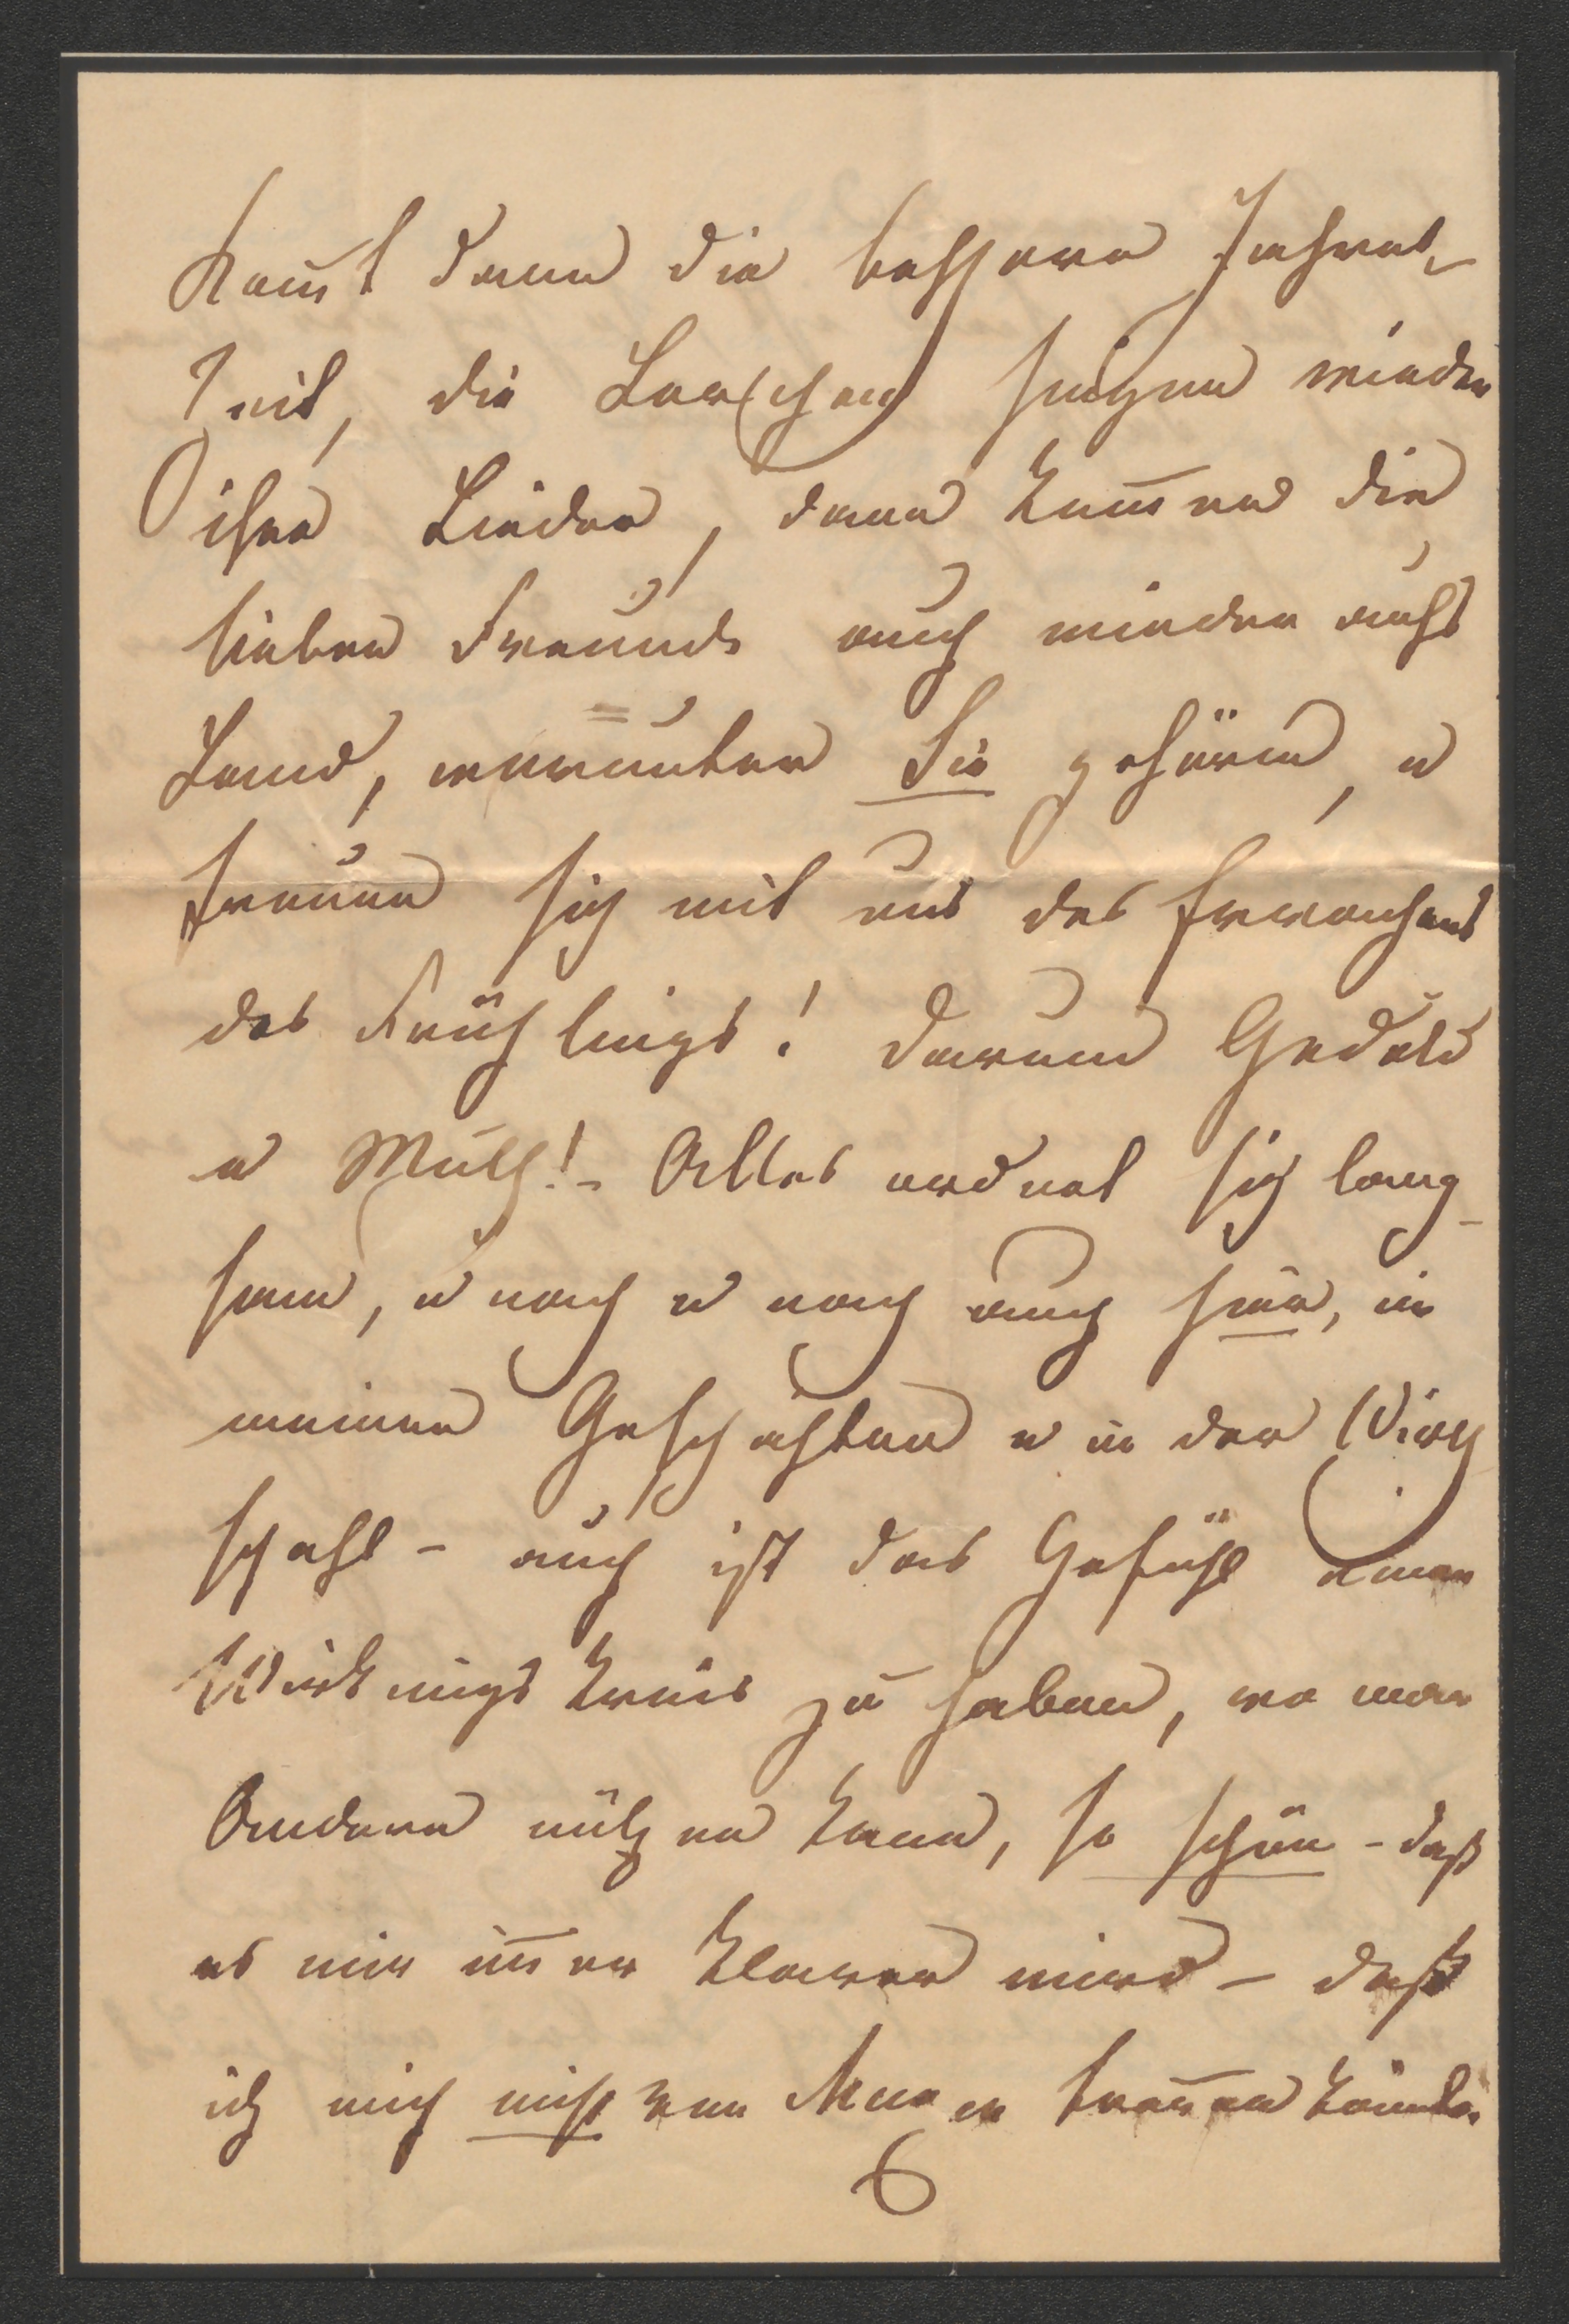 Kom̅t dann die bessere Jahres-
Zeit, die Lerchen singen wieder
ihre Lieder, dann kom̅en die
lieben Freunde auch wieder aufs
Land, worunter Sie gehören, u
freuen sich mit uns des Erwachens
des Frühlings! Darum Geduld
u Muth! - Alles ordnet sich lang-
sam, u nach u nach auch hier, in
meinen Geschäften u in der Wirth
schaft - auch ist das Gefühl einen
Wirkungskreis zu haben, wo man
Andern nützen kann, so schön - daß
es mir im̅er klarer wird - daß
ich mich nicht von trennen könnte.
6